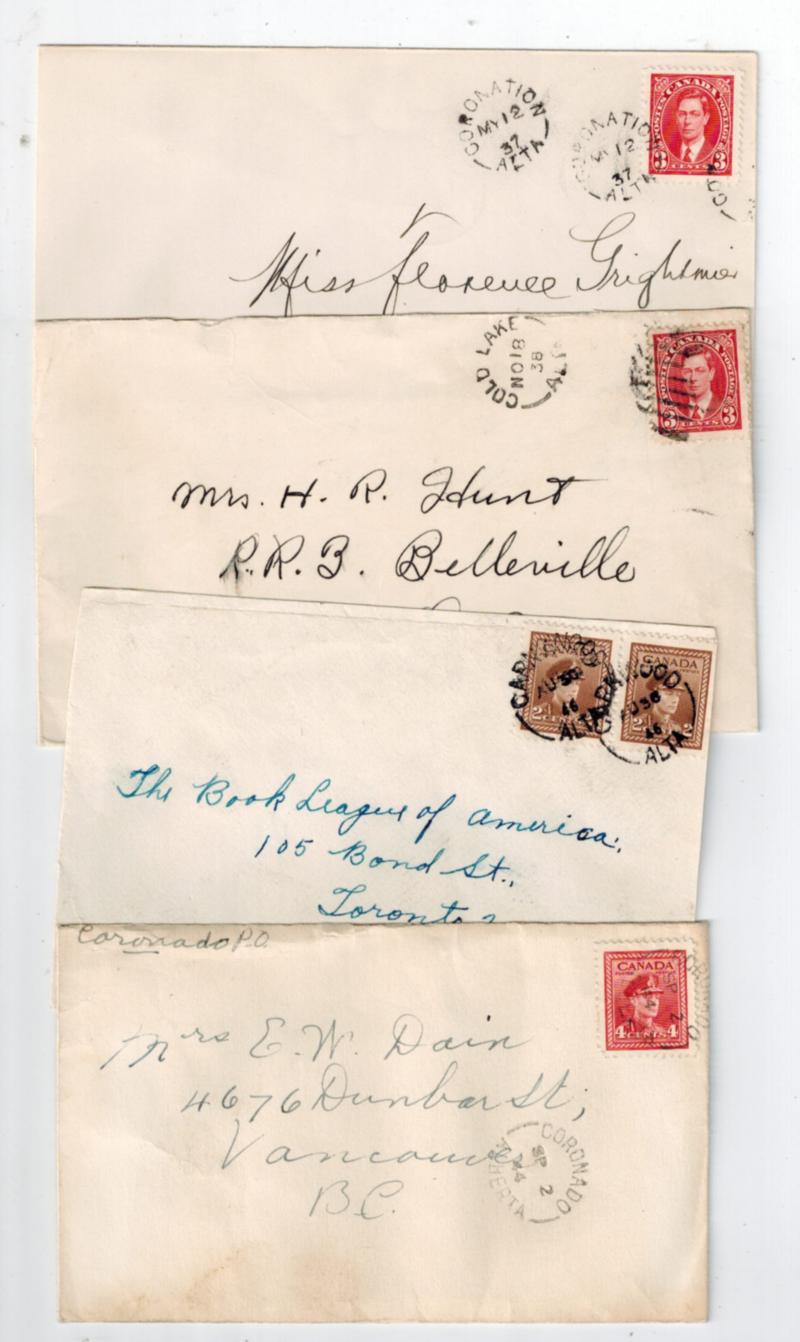 CORONATION
MY 12
37
ALTA
CORONATION
MY 12
37
ALTA
POSTES CANADA POSTAGE
3 CENTS 3
Miss Florence
COLD LAKE
NO 18
38
ALTA
POSTES CANADA POSTAGE
3 CENTS 3
Mrs. H. R. Hunt
R.R. 3. Belleville
AU 30
46
ALTA
CANADA
2
46
ALTA
The Book League of America,
105 Bond St.,
Toronto
Coronado P.O.
CANADA
4 CENTS 4
Mrs E. W. Dain
4676 Dunbar St,
Vancouver
B.C.
CORONADO
SP 2
44
ALBERTA